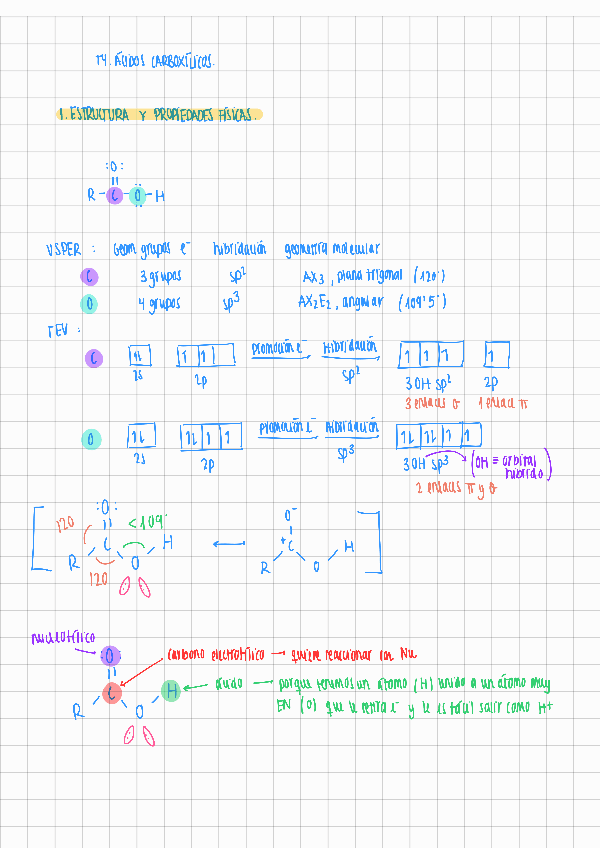 T4. ÁCIDOS CARBOXÍLICOS.
1. ESTRUCTURA Y PROPIEDADES FÍSICAS.
:O:
R - C - O - H
VSPER : Geom grupos e⁻ hibridación geometría molecular
C 3 grupos sp² AX₃, plana trigonal (120°)
O 4 grupos sp³ AX₂E₂, angular (109'5°)
TEV :
C promoción e⁻ Hibridación
2s 2p sp² 3 OH sp² 2p
3 enlaces σ 1 enlace π
O promoción e⁻ Hibridación
2s 2p sp³ 3 OH sp³ (OH = orbital híbrido)
2 enlaces π y σ
:O: O⁻
120 <109° H + C H
R C O R O
120
nucleofílico
O carbono electrofílico → quiere reaccionar con Nu
C H ácido → porque tenemos un átomo (H) unido a un átomo muy
R O EN (O) que le retira e⁻ y le es fácil salir como H+